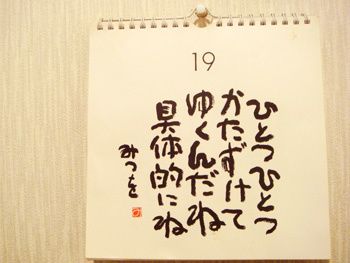 19
ひとつひとつ
かたずけて
ゆくんだね
具体的にね
みつを